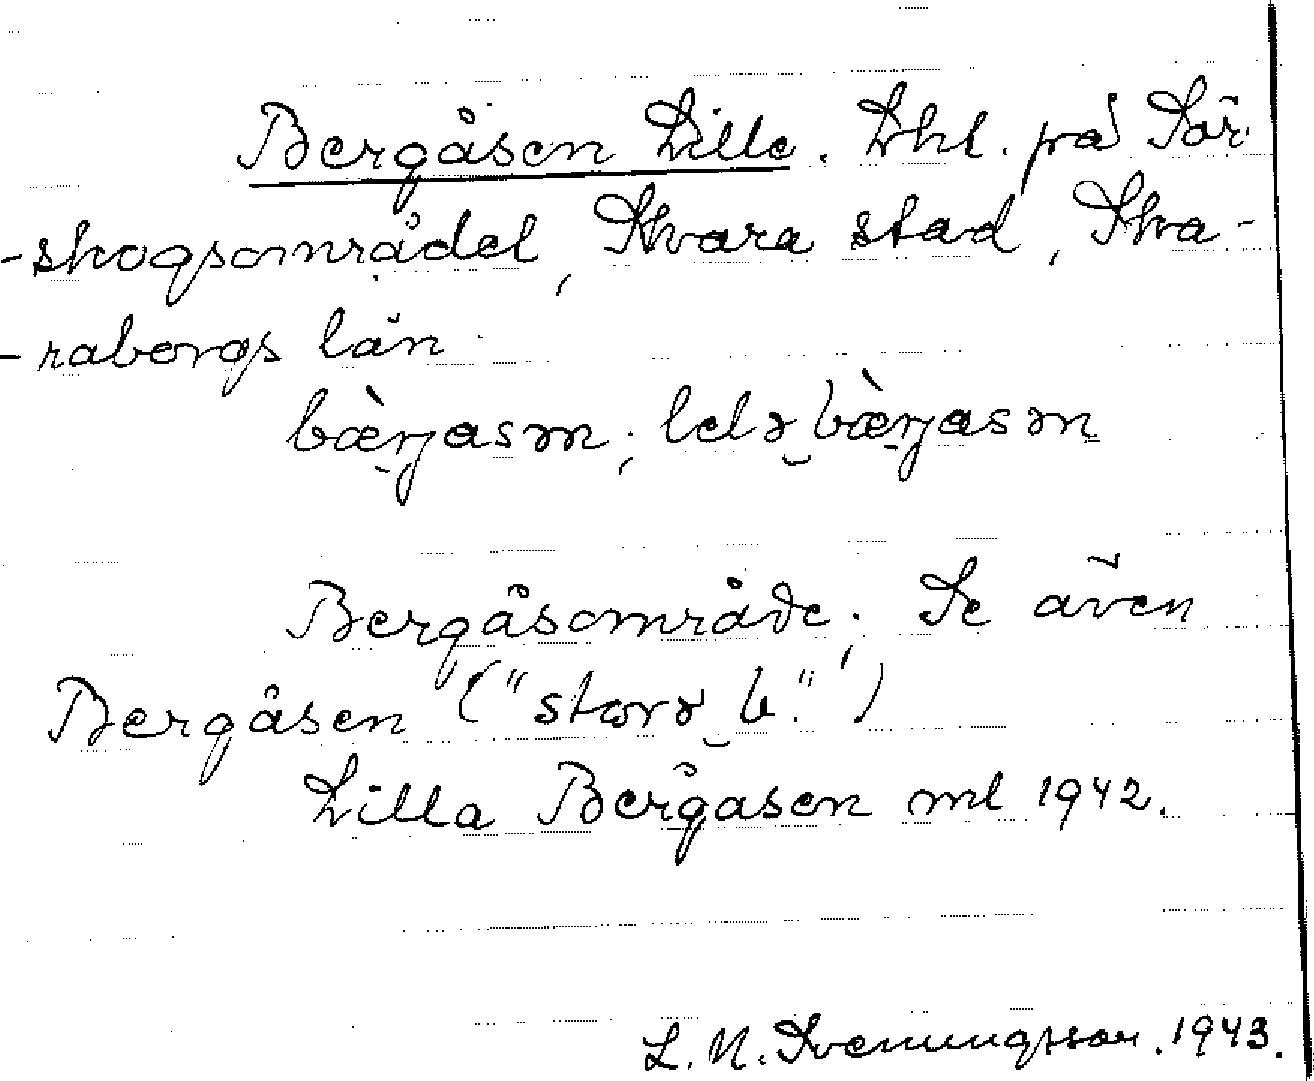 Bergåsen Lille. Lht. på Sör-
-skogsområdet, Skara stad, Ska-
-raborgs län
bæ̀rjasən; letə‿bæ̀rjasən
Bergåsområde; Se även
Bergåsen ("storə‿b.")
Lilla Bergåsen ml 1942.
L. N. Svenungsson. 1943.